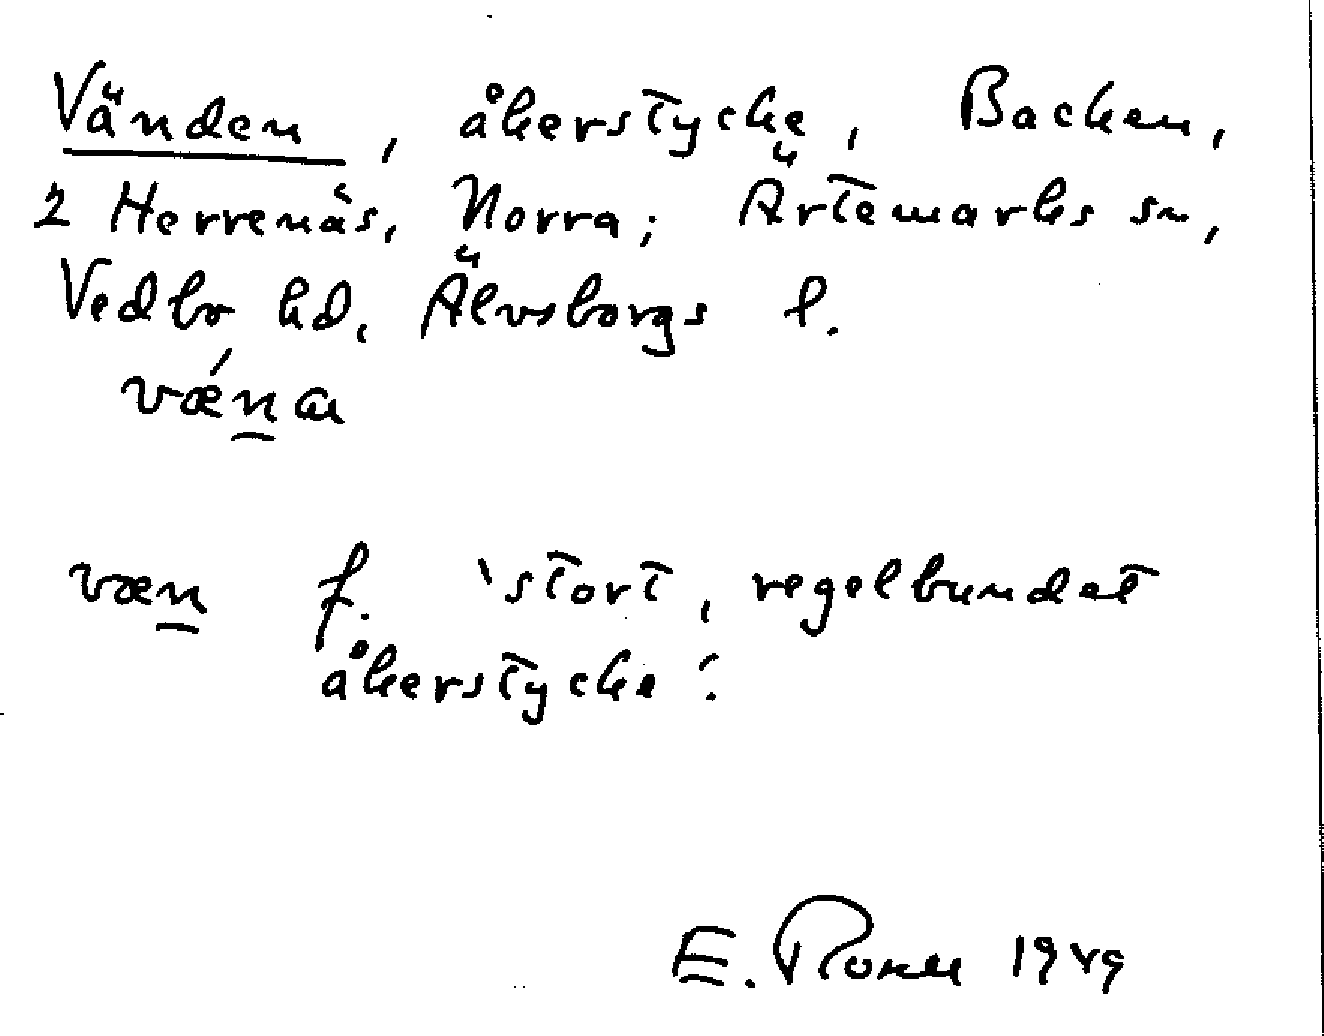 Vänden, åkerstycke, Backen,
2 Herrenäs, Norra; Ärtemarks sn,
Vedbo hd, Älvsborgs l.
vǽn̲a
væn̲ f. 'stort, regelbundet
åkerstycke'.
E. 1949